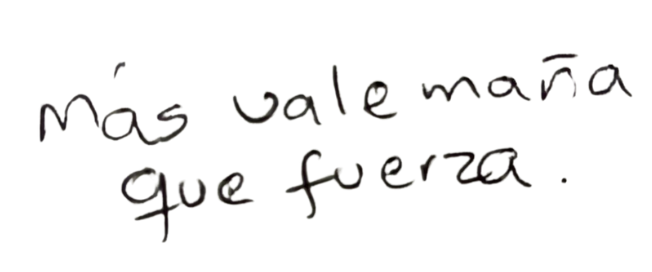 Más vale maña
que fuerza.